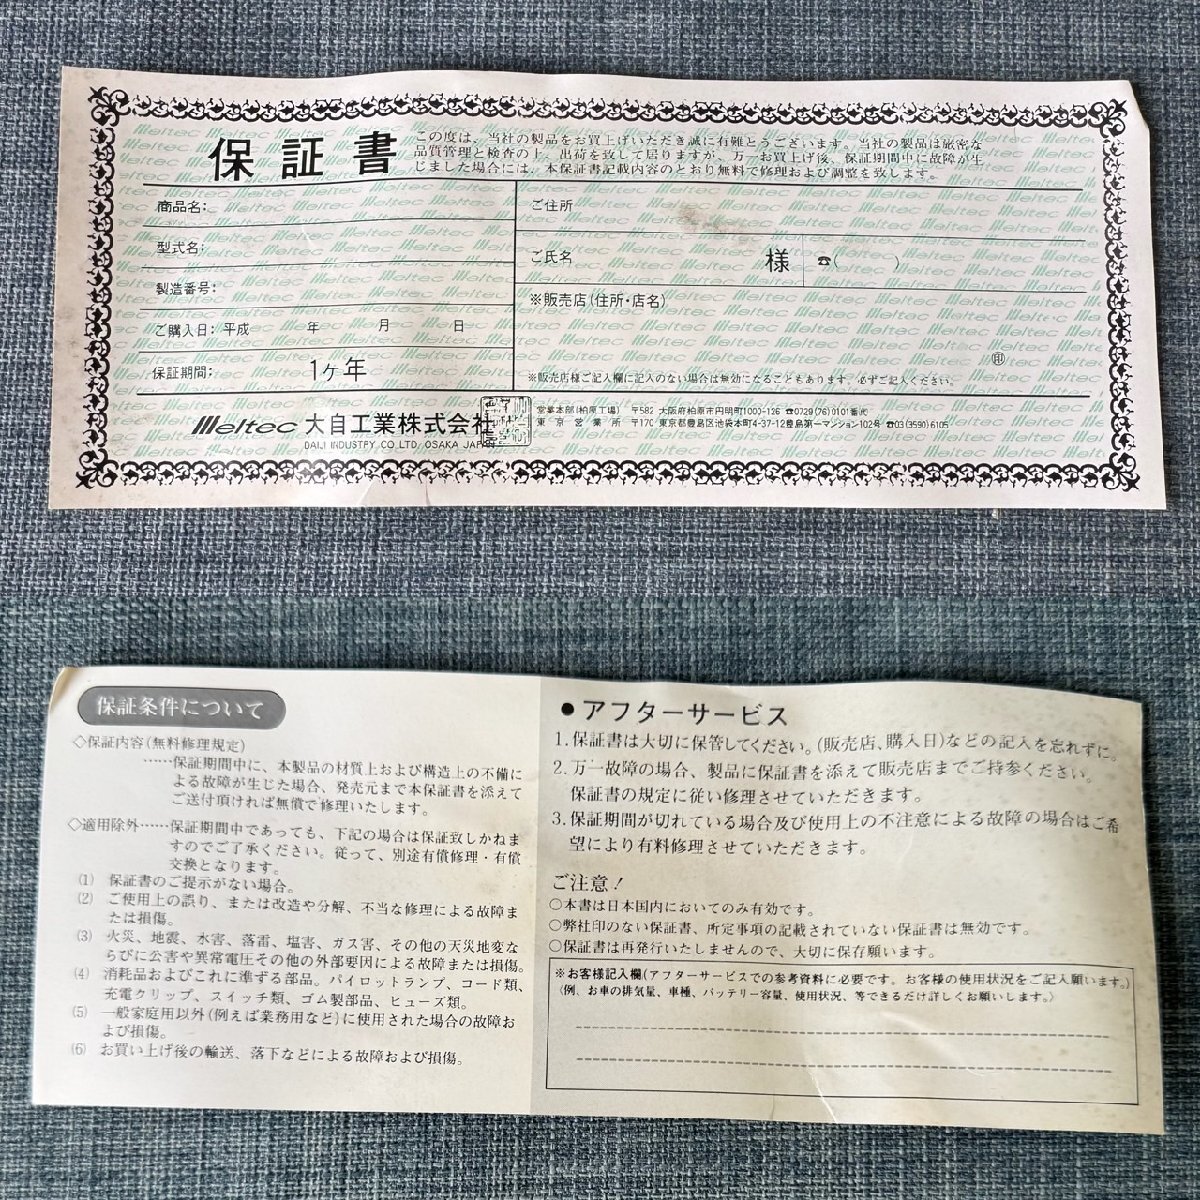 保証書
この度は、当社の製品をお買上げいただき誠に有難とうございます。当社の製品は厳密な
品質管理と検査の上、出荷を致して居りますが、万一お買上げ後、保証期間中に故障が生
じました場合には、本保証書記載内容のとおり無料で修理および調整を致します。
商品名:
型式名:
製造番号:
ご購入日:平成 年 月 日
保証期間: 1ヶ年
ご住所
ご氏名 様 ☎( )
※販売店(住所・店名)
㊞
※販売店様ご記入欄に記入のない場合は無効になることもあります。必ずご記入ください。
Meltec 大自工業株式会社
DAIJI INDUSTRY CO.LTD. OSAKA JAPAN
営業本部(柏原工場) 〒582 大阪府柏原市円明町1000-126 ☎0729(76)0101番代
東京営業所 〒170 東京都豊島区池袋本町4-37-12豊島第一マンション102号 ☎03(3590)6105
保証条件について
◇保証内容(無料修理規定)
……保証期間中に、本製品の材質上および構造上の不備に
よる故障が生じた場合、発売元まで本保証書を添えて
ご送付頂ければ無償で修理いたします。
◇適用除外……保証期間中であっても、下記の場合は保証致しかねま
すのでご了承ください。従って、別途有償修理・有償
交換となります。
(1) 保証書のご提示がない場合。
(2) ご使用上の誤り、または改造や分解、不当な修理による故障ま
たは損傷。
(3) 火災、地震、水害、落雷、塩害、ガス害、その他の天災地変な
らびに公害や異常電圧その他の外部要因による故障または損傷。
(4) 消耗品およびこれに準ずる部品。パイロットランプ、コード類、
充電クリップ、スイッチ類、ゴム製部品、ヒューズ類。
(5) 一般家庭用以外(例えば業務用など)に使用された場合の故障お
よび損傷。
(6) お買い上げ後の輸送、落下などによる故障および損傷。
●アフターサービス
1.保証書は大切に保管してください。(販売店、購入日)などの記入を忘れずに。
2.万一故障の場合、製品に保証書を添えて販売店までご持参ください。
保証書の規定に従い修理させていただきます。
3.保証期間が切れている場合及び使用上の不注意による故障の場合はご希
望により有料修理させていただきます。
ご注意!
○本書は日本国内においてのみ有効です。
○弊社印のない保証書、所定事項の記載されていない保証書は無効です。
○保証書は再発行いたしませんので、大切に保存願います。
※お客様記入欄(アフターサービスでの参考資料に必要です。お客様の使用状況をご記入願います。)
(例、お車の排気量、車種、バッテリー容量、使用状況、等できるだけ詳しくお願いします。)